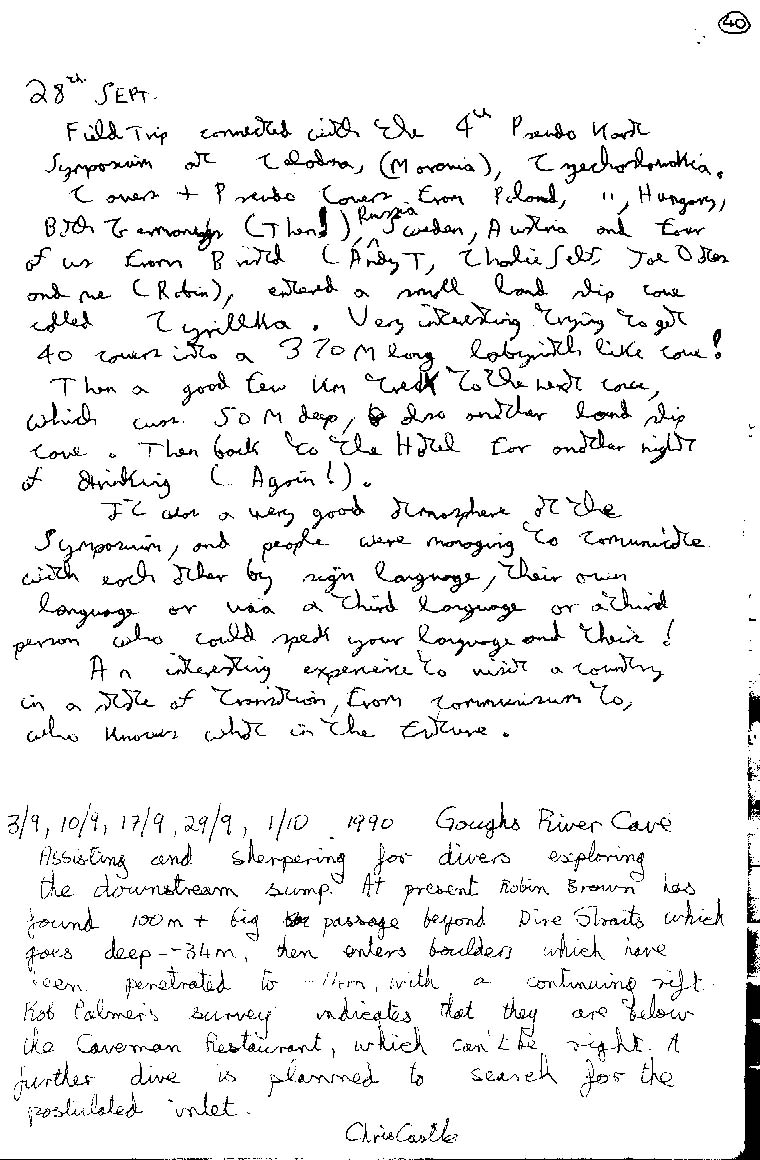 40
28th SEPT.
Field Trip connected with the 4th Pseudo Karst
Symposium at (Moravia), Czechoslovakia.
Cavers + Pseudo Cavers from Poland, ", Hungary,
Both Germanys (Then!), Russia Sweden, Austria and four
of us from Bristol (Andy T, Charlie Self, Joe
and me (Robin), entered a small land slip cave
called Cyrillka. Very interesting trying to get
40 cavers into a 370M long labyrinth like cave!
Then a good few Km trek to the next cave,
which was 50M deep, also another land slip
cave. Then back to the Hotel for another night
of drinking (Again!).
It was a very good atmosphere at the
Symposium, and people were managing to comunicate
with each other by sign language, their own
language or via a third language or a third
person who could speak your language and theirs!
An interesting experience to visit a country
in a state of transition, from communisum to,
who knows what in the future.
3/9, 10/9, 17/9, 29/9, 1/10 1990 Goughs River Cave
Assisting and sherpering for divers exploring
the downstream sump. At present Robin Brown has
found 100m + big passage beyond Dire Straits which
goes deep -- 34m, then enters boulders which have
been penetrated to with a continuing rift.
Rob Palmer's survey indicates that they are below
the Caveman Restaurant, which can't be right. A
further dive is planned to search for the
postulated inlet.
Chris Castle